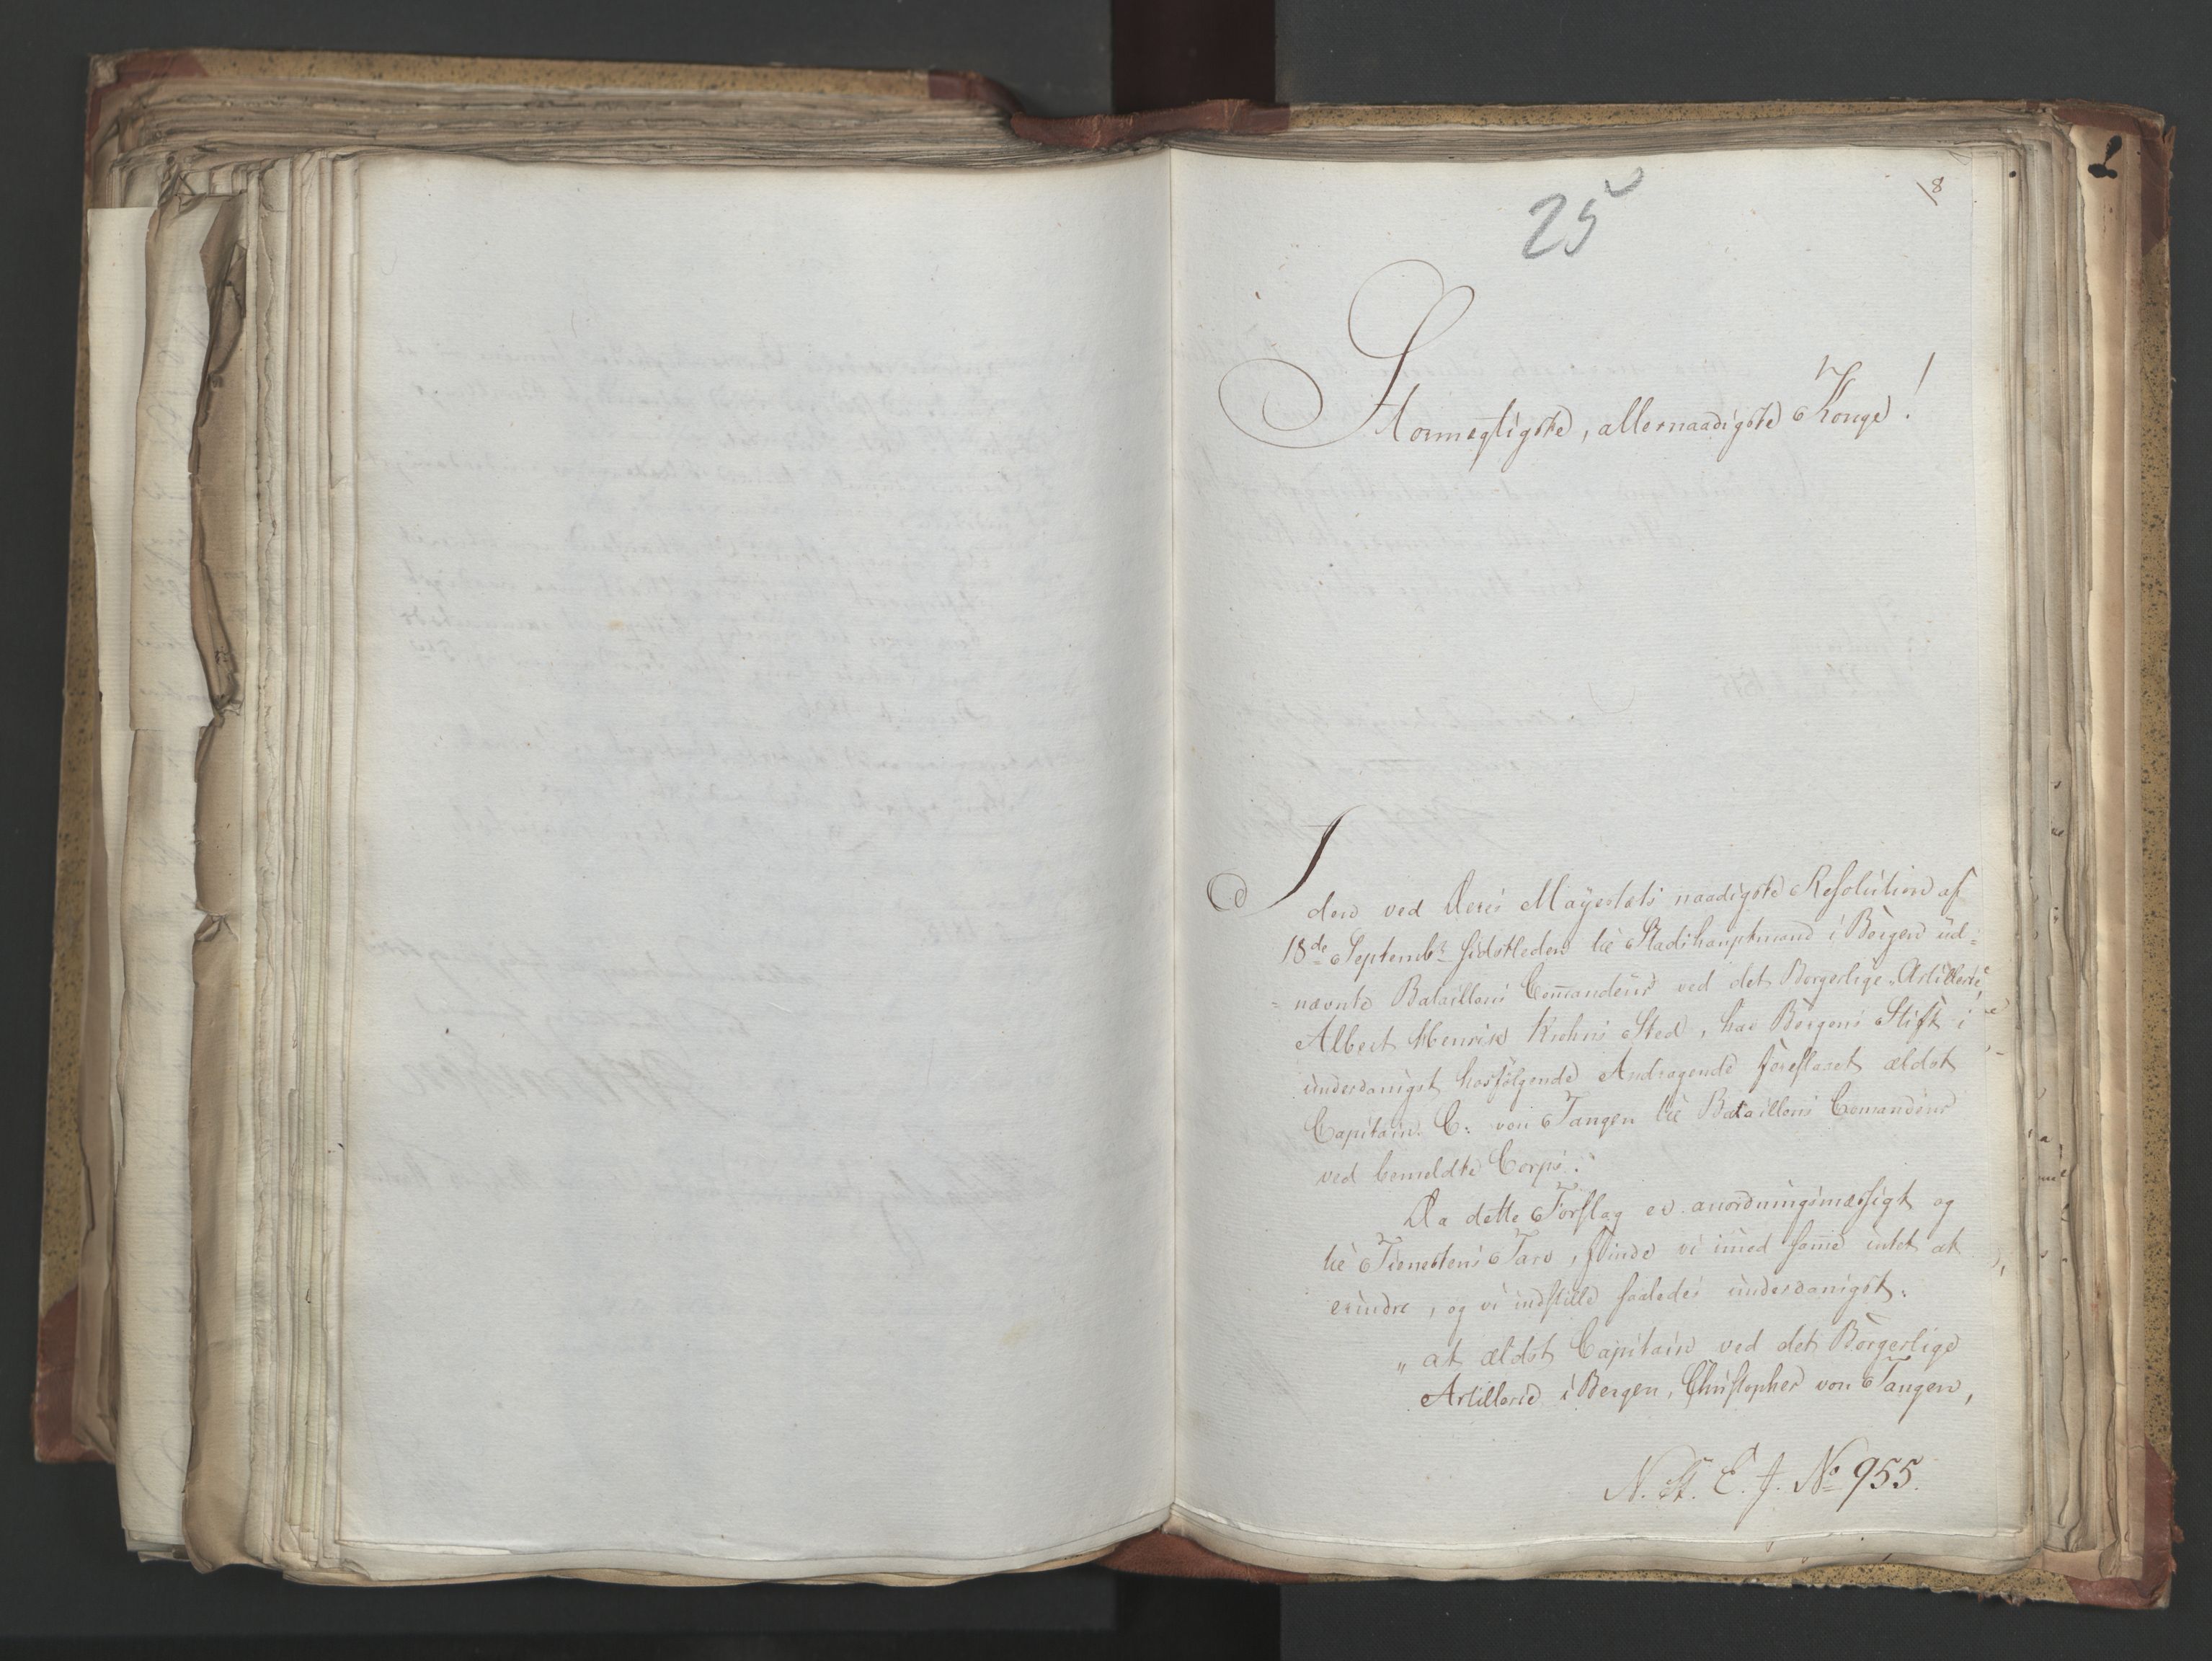 8
25
Stormægtigste, allernaadigste Konge!
I den ved Deres Mayestæts naadigste Resolution af
18de Septembr sidstleden til Stadshauptmand i Bergen ud=
=nævnte Bataillons Comandeur ved det Borgerlige Artillerie,
Albert Henrik Krohns Sted, har Bergens Stift i
underdanigst hosfølgende Andragende foreslaaet ældst
Capitain C: von Tangen til Bataillons Comandeur
ved bemeldte Corps.
Da dette Forslag er anordningsmæssigt og
til Tienestens Tarv, finde vi imod samme intet at
erindre, og vi indstille saaledes underdanigst:
„at ældst Capitain ved det Borgerlige
Artillerie i Bergen, Christopher von Tangen,
N. St. E. J. No 955.